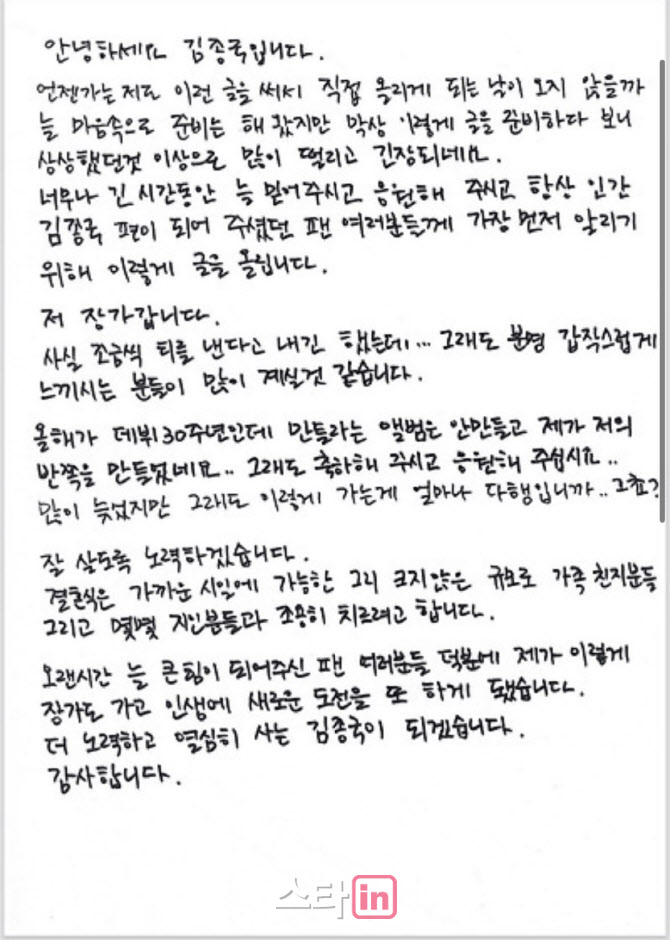 안녕하세요 김종국입니다.
언젠가는 저도 이런 글을 써서 직접 올리게 되는 날이 오지 않을까
늘 마음속으로 준비는 해 왔지만 막상 이렇게 글을 준비하다 보니
상상했던것 이상으로 많이 떨리고 긴장되네요.
너무나 긴 시간동안 늘 믿어주시고 응원해 주시고 항상 인간
김종국 편이 되어 주셨던 팬 여러분들께 가장 먼저 알리기
위해 이렇게 글을 올립니다.
저 장가갑니다.
사실 조금씩 티를 낸다고 내긴 했는데... 그래도 분명 갑작스럽게
느끼시는 분들이 많이 계실것 같습니다.
올해가 데뷔 30주년인데 만들라는 앨범은 안만들고 제가 저의
반쪽을 만들었네요.. 그래도 축하해 주시고 응원해 주십시요..
많이 늦었지만 그래도 이렇게 가는게 얼마나 다행입니까.. 그쵸?
잘 살도록 노력하겠습니다.
결혼식은 가까운 시일에 가능한 그리 크지않은 규모로 가족 친지분들
그리고 몇몇 지인분들과 조용히 치르려고 합니다.
오랜시간 늘 큰힘이 되어주신 팬 여러분들 덕분에 제가 이렇게
장가도 가고 인생에 새로운 도전을 또 하게 됐습니다.
더 노력하고 열심히 사는 김종국이 되겠습니다.
감사합니다.
스타in